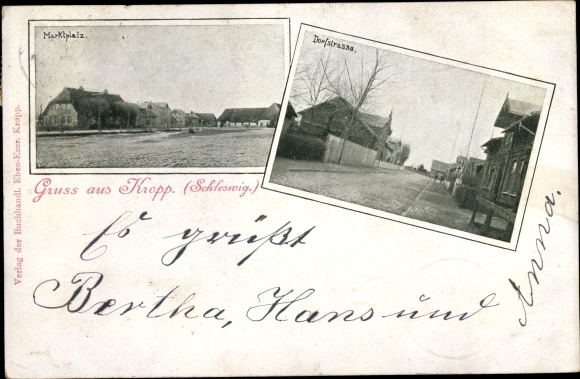 Marktplatz.
Dorfstrasse.
Gruss aus Kropp. (Schleswig.)
Verlag der Buchhandl. Eben-Ezer. Kropp.
Es grüßt
Bertha, Hans und
Anna.